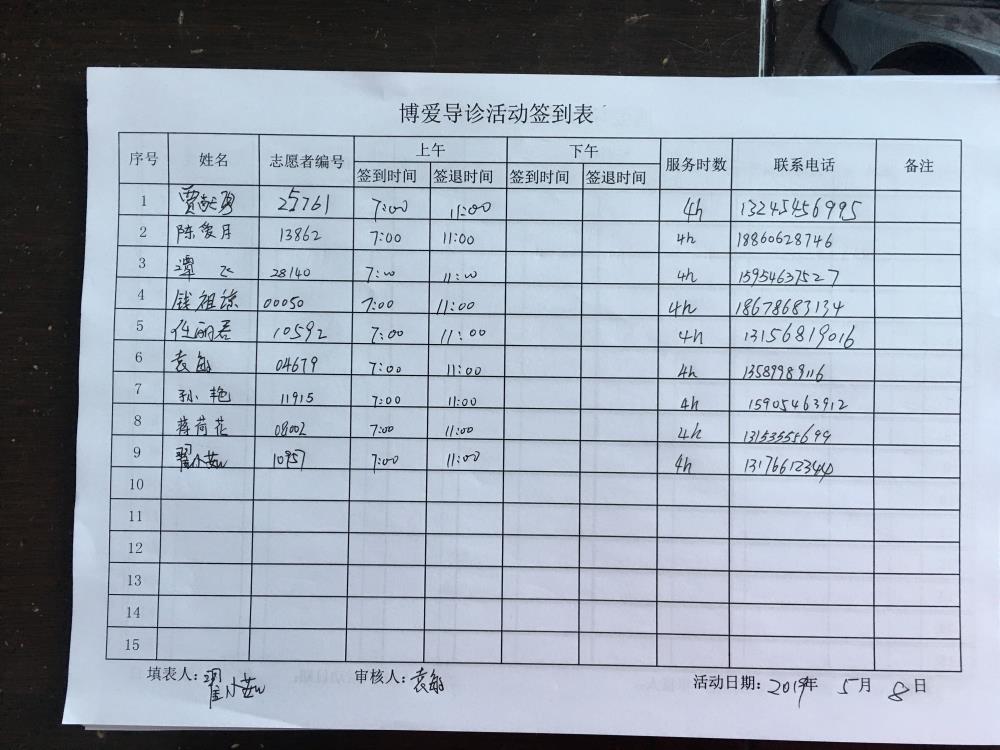 博爱导诊活动签到表
序号 姓名 志愿者编号 上午 下午 服务时数 联系电话 备注
签到时间 签退时间 签到时间 签退时间
1 25761 7:00 11:00 4h 13245456995
2 陈爱月 13862 7:00 11:00 4h 18860628746
3 谭飞 28140 7:00 11:00 4h 15954637527
4 钱祖琼 00050 7:00 11:00 4h 18678683134
5 任丽君 10592 7:00 11:00 4h 13156819016
6 袁敏 04679 7:00 11:00 4h 13589989116
7 孙艳 11915 7:00 11:00 4h 15905463912
8 蒋荷花 08002 7:00 11:00 4h 13153555699
9 翟小茹 10957 7:00 11:00 4h 13176612344
10
11
12
13
14
15
填表人:翟小茹 审核人:袁敏 活动日期:2019年 5月 8日